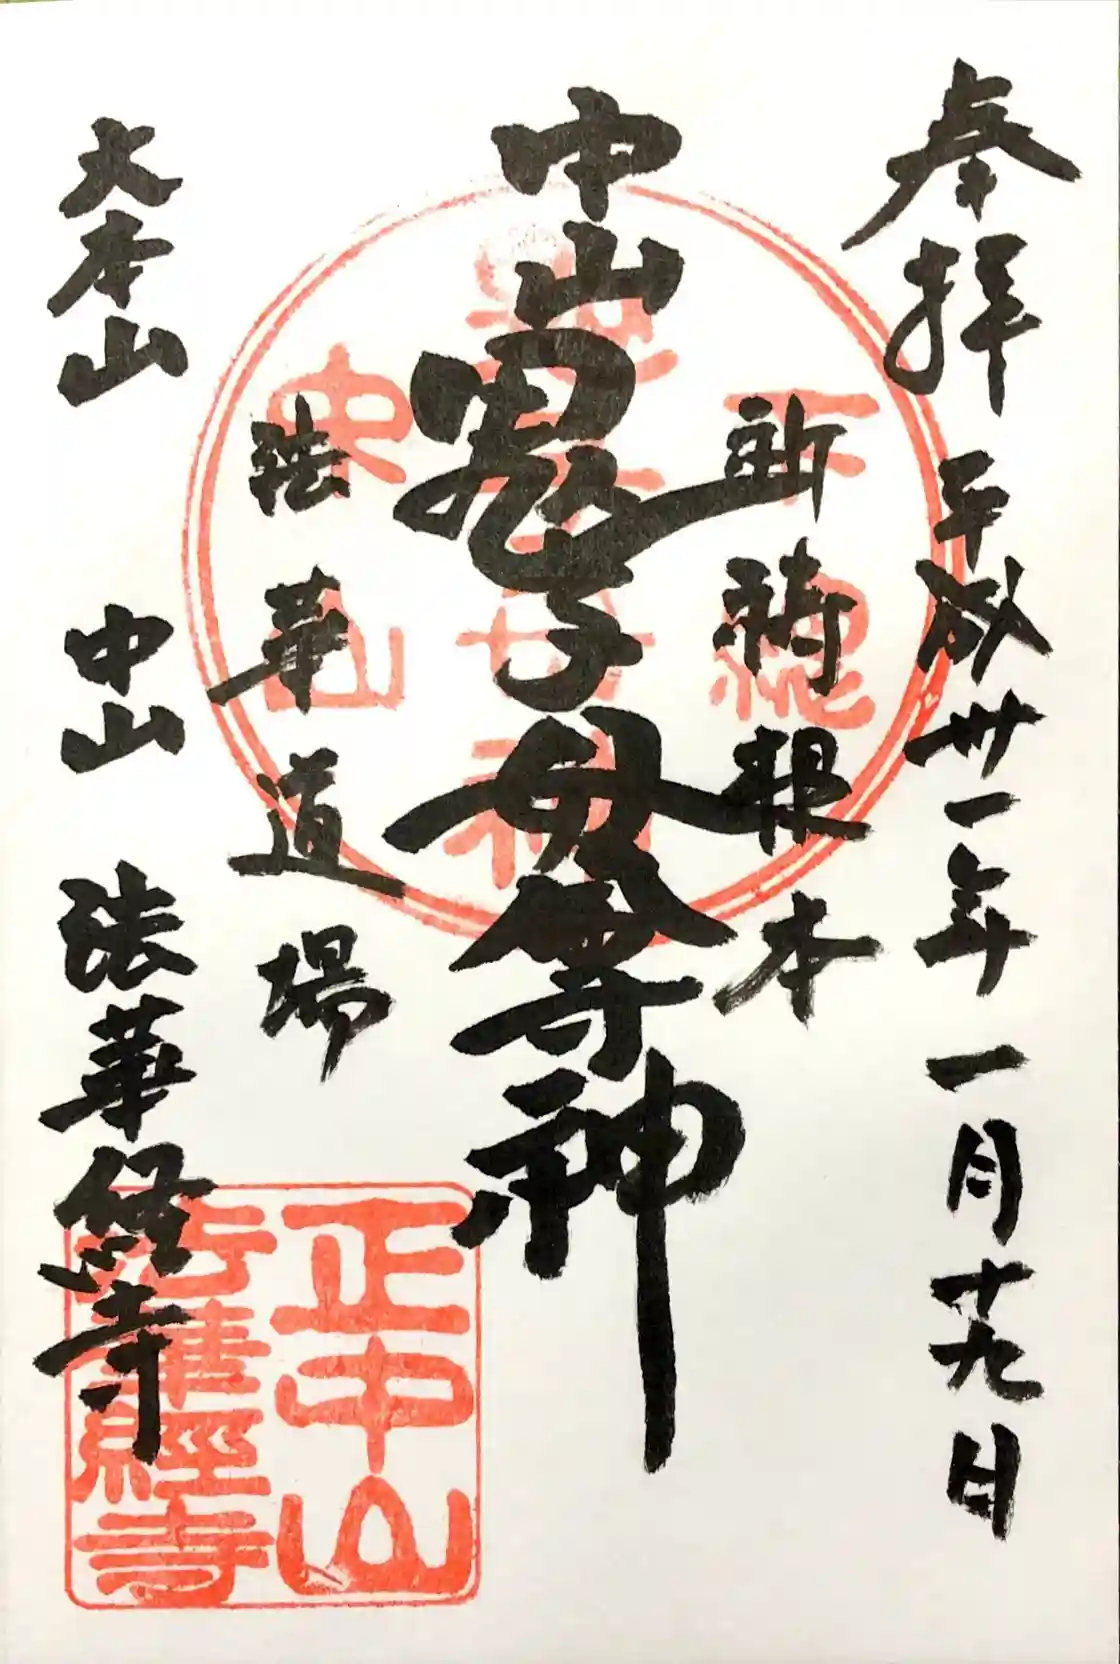 奉拝
平成卅一年一月十九日
祈祷根本
中山鬼子母尊神
法華道場
大本山
中山
法華経寺
下總
中山
正中山
法華經寺